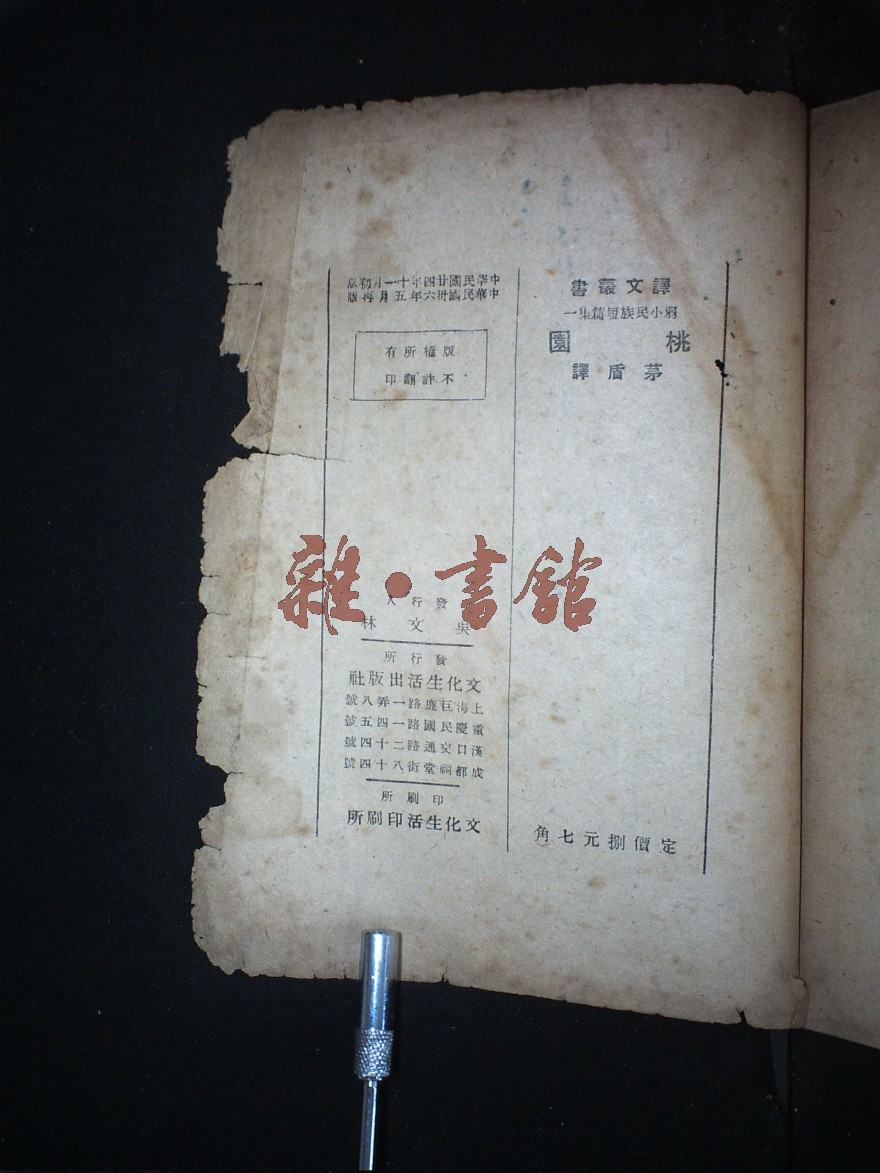 譯文叢書
弱小民族短篇集一
桃園
茅盾譯
定價捌元七角
中華民國廿四年十一月初版
中華民國卅六年五月再版
版權所有
不許翻印
發行人
吳文林
發行所
文化生活出版社
上海巨鹿路一弄八號
重慶民國路一四五號
漢口交通路二十四號
成都祠堂街八十四號
印刷所
文化生活印刷所
雜·書館